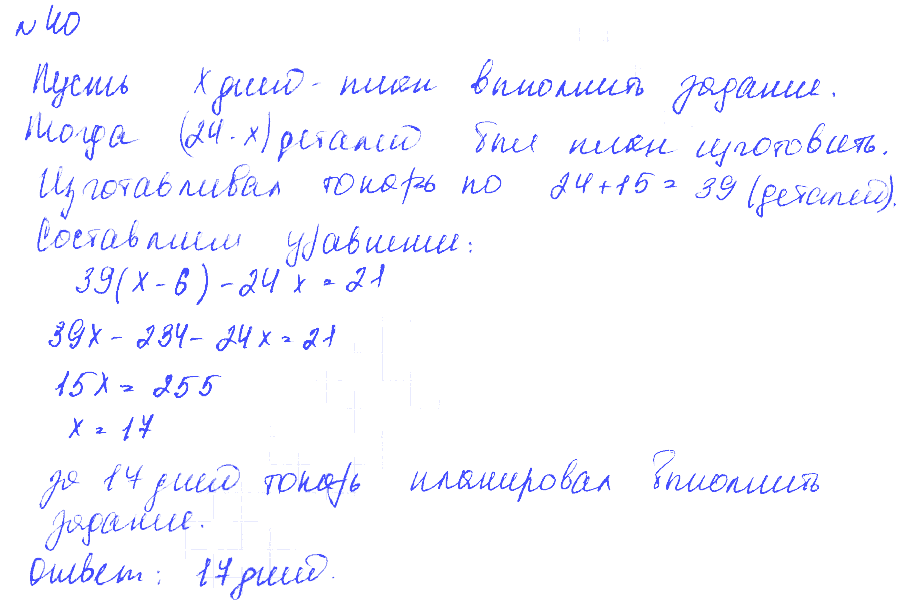 № 40
Пусть x дней - план выполнить задание.
Тогда (24 · x) деталей был план изготовить.
Изготавливал токарь по 24 + 15 = 39 (деталей).
Составлим уравнение:
39(x - 6) - 24x = 21
39x - 234 - 24x = 21
15x = 255
x = 17
за 17 дней токарь планировал выполнить
задание.
Ответ: 17 дней.